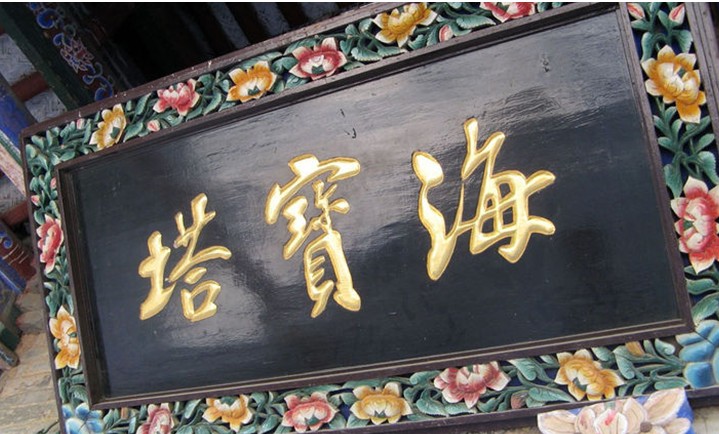 海寶塔